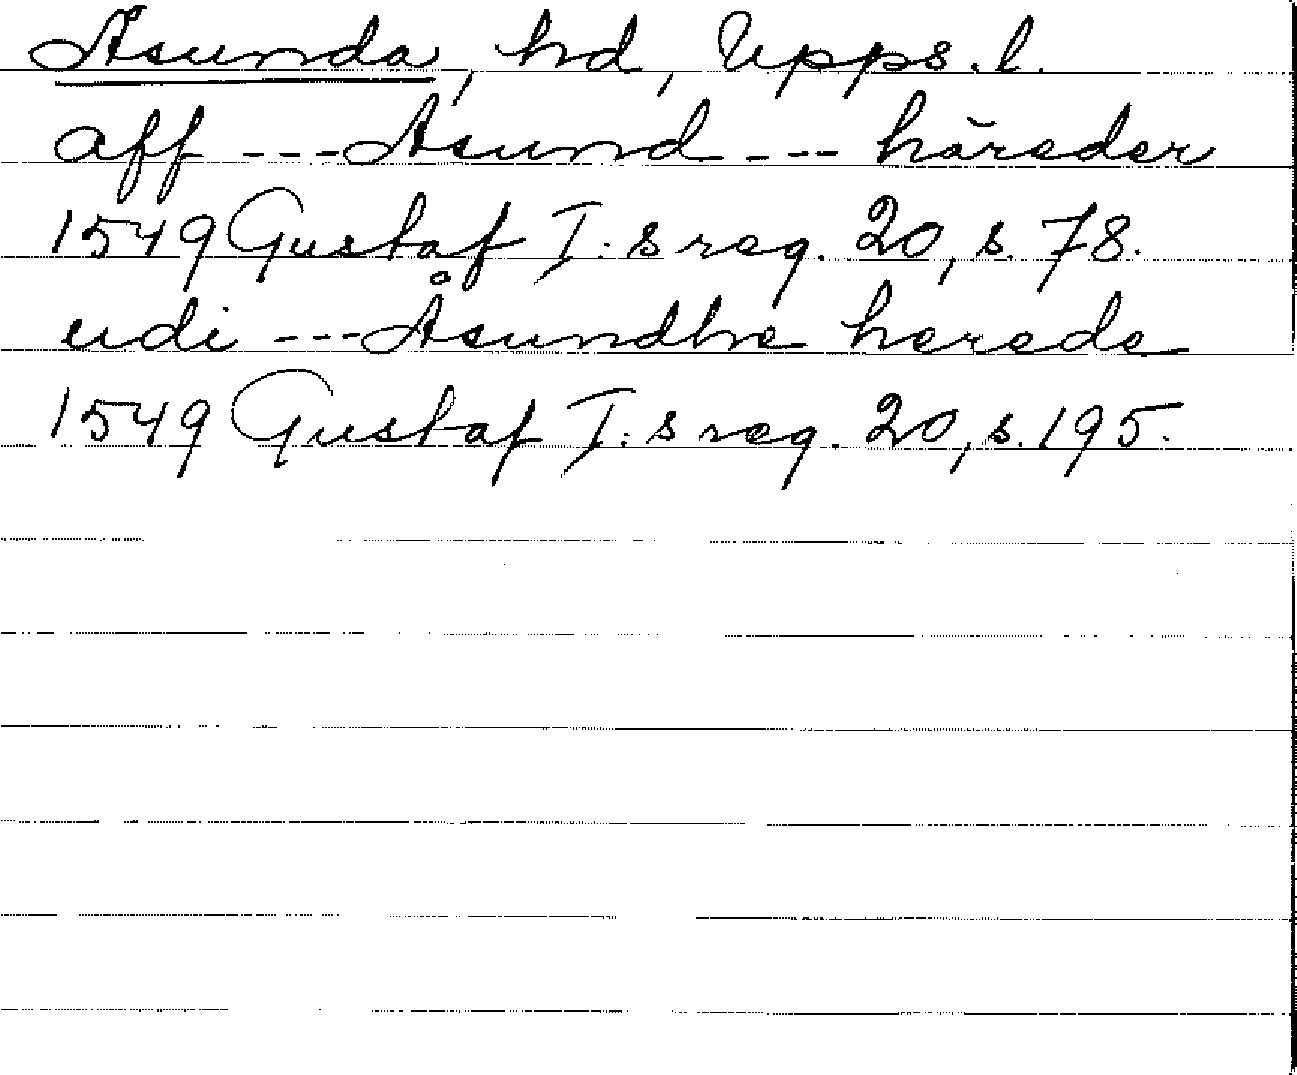 Åsunda, hd, Upps. l.
aff --- Asund --- häreder
1549 Gustaf I:s reg. 20, s. 78.
udi --- Åsundhe herede
1549 Gustaf I:s reg. 20, s. 195.